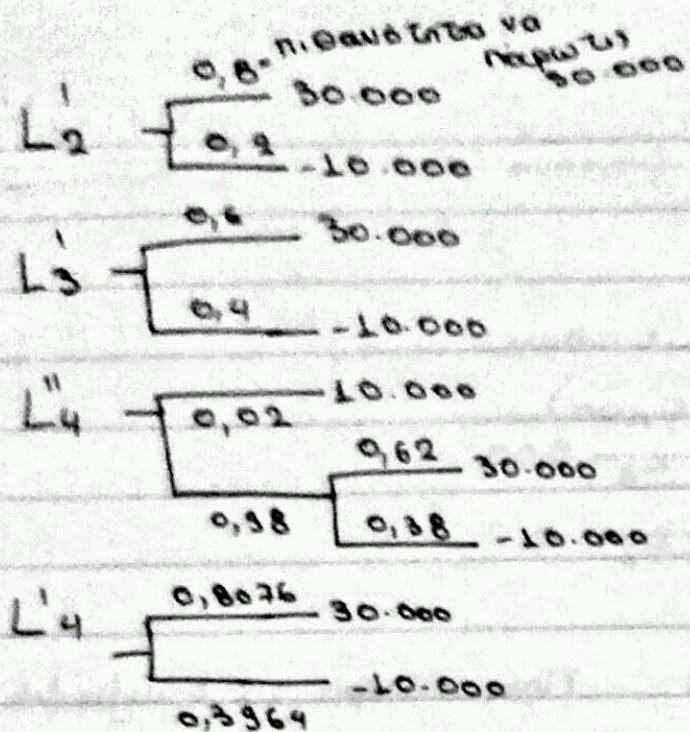 0,8= πιθανότητα να
παρω τις
30.000
L'2
30.000
0,2
-10.000
L'3
0,6
30.000
0,4
-10.000
L''4
10.000
0,02
0,62
30.000
0,98
0,38
-10.000
L'4
0,8076
30.000
-10.000
0,3964